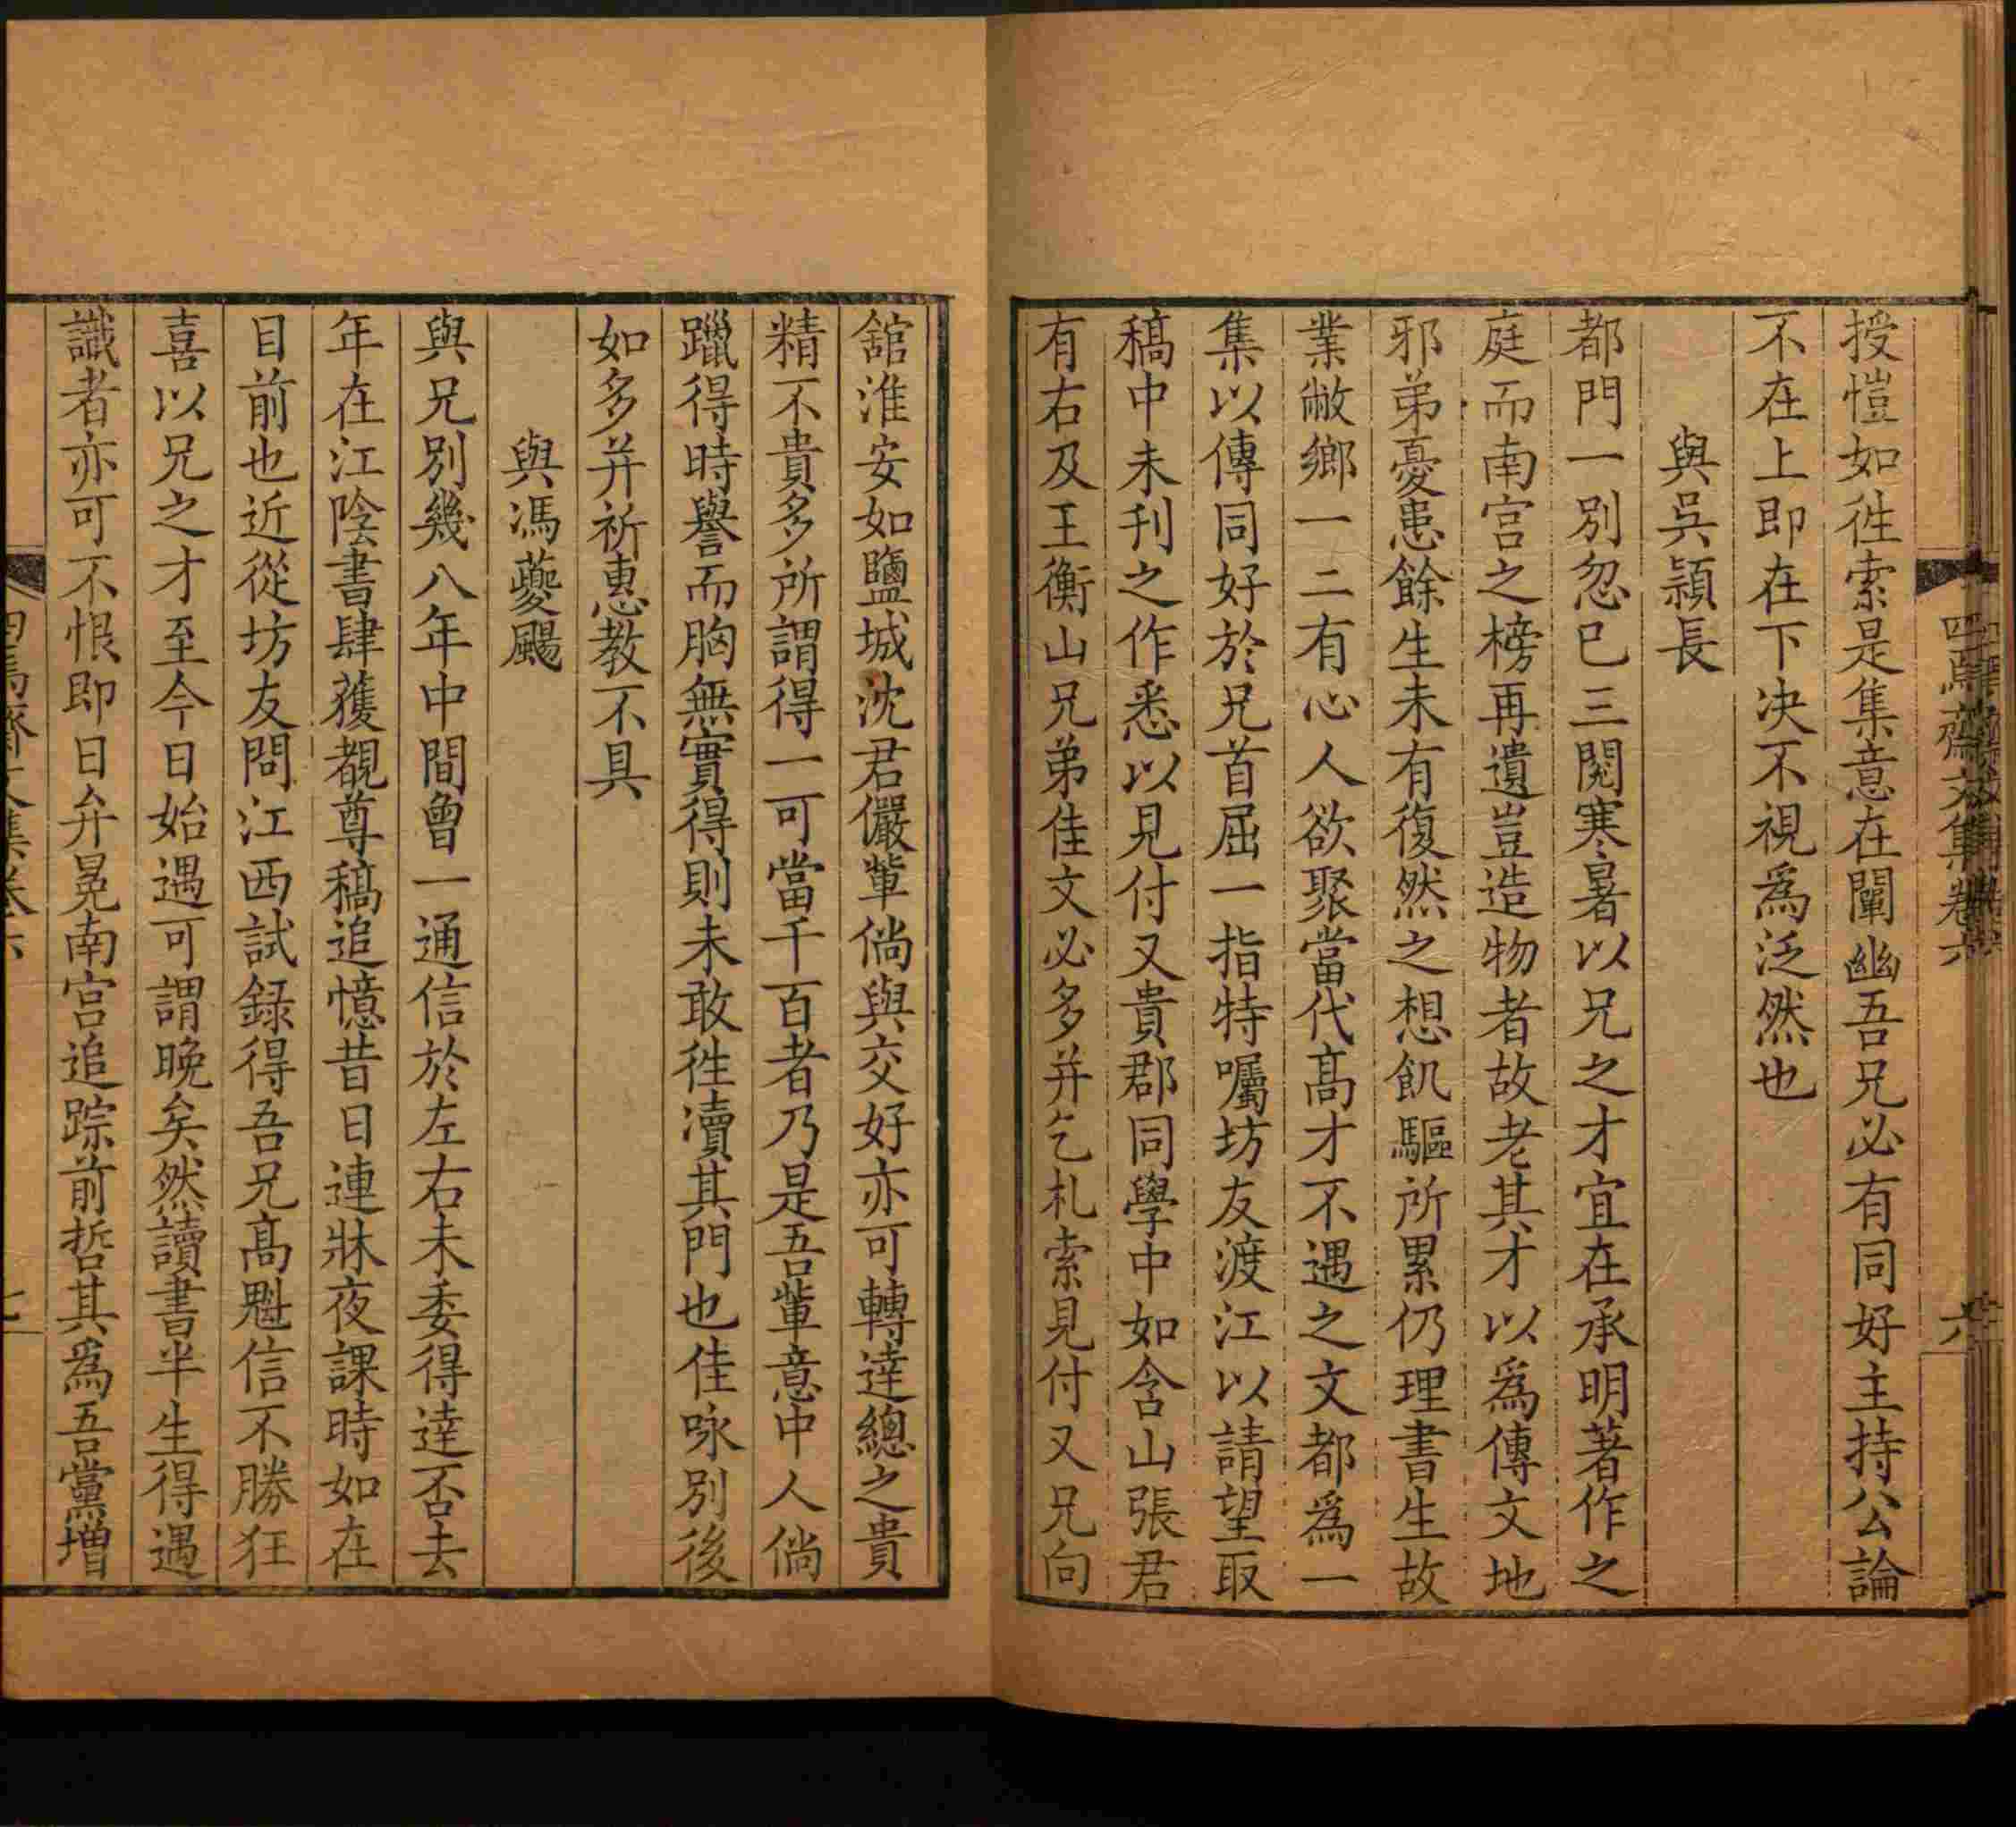 四焉齋文集卷六
六
授愷如徃索是集意在闡幽吾兄必有同好主持公論
不在上即在下决不視爲泛然也
與吳頴長
都門一別忽已三閱寒暑以兄之才宜在承明著作之
庭而南宫之榜再遺豈造物者故老其才以爲傳文地
邪弟憂患餘生未有復然之想飢驅所累仍理書生故
業敝鄉一二有心人欲聚當代高才不遇之文都爲一
集以傳同好於兄首屈一指特囑坊友渡江以請望取
稿中未刊之作悉以見付又貴郡同學中如含山張君
有右及王衡山兄弟佳文必多并乞札索見付又兄向
舘淮安如鹽城沈君儼輩倘與交好亦可轉逹總之貴
精不貴多所謂得一可當千百者乃是吾輩意中人倘
躐得時譽而胸無實得則未敢徃瀆其門也佳咏別後
如多并祈惠教不具
與馮夔颺
與兄別幾八年中間曾一通信於左右未委得逹否去
年在江陰書肆獲覩尊稿追憶昔日連牀夜課時如在
目前也近從坊友問江西試録得吾兄高魁信不勝狂
喜以兄之才至今日始遇可謂晚矣然讀書半生得遇
識者亦可不恨即日弁冕南宫追踪前哲其爲吾黨增
四焉齋文集卷六
七